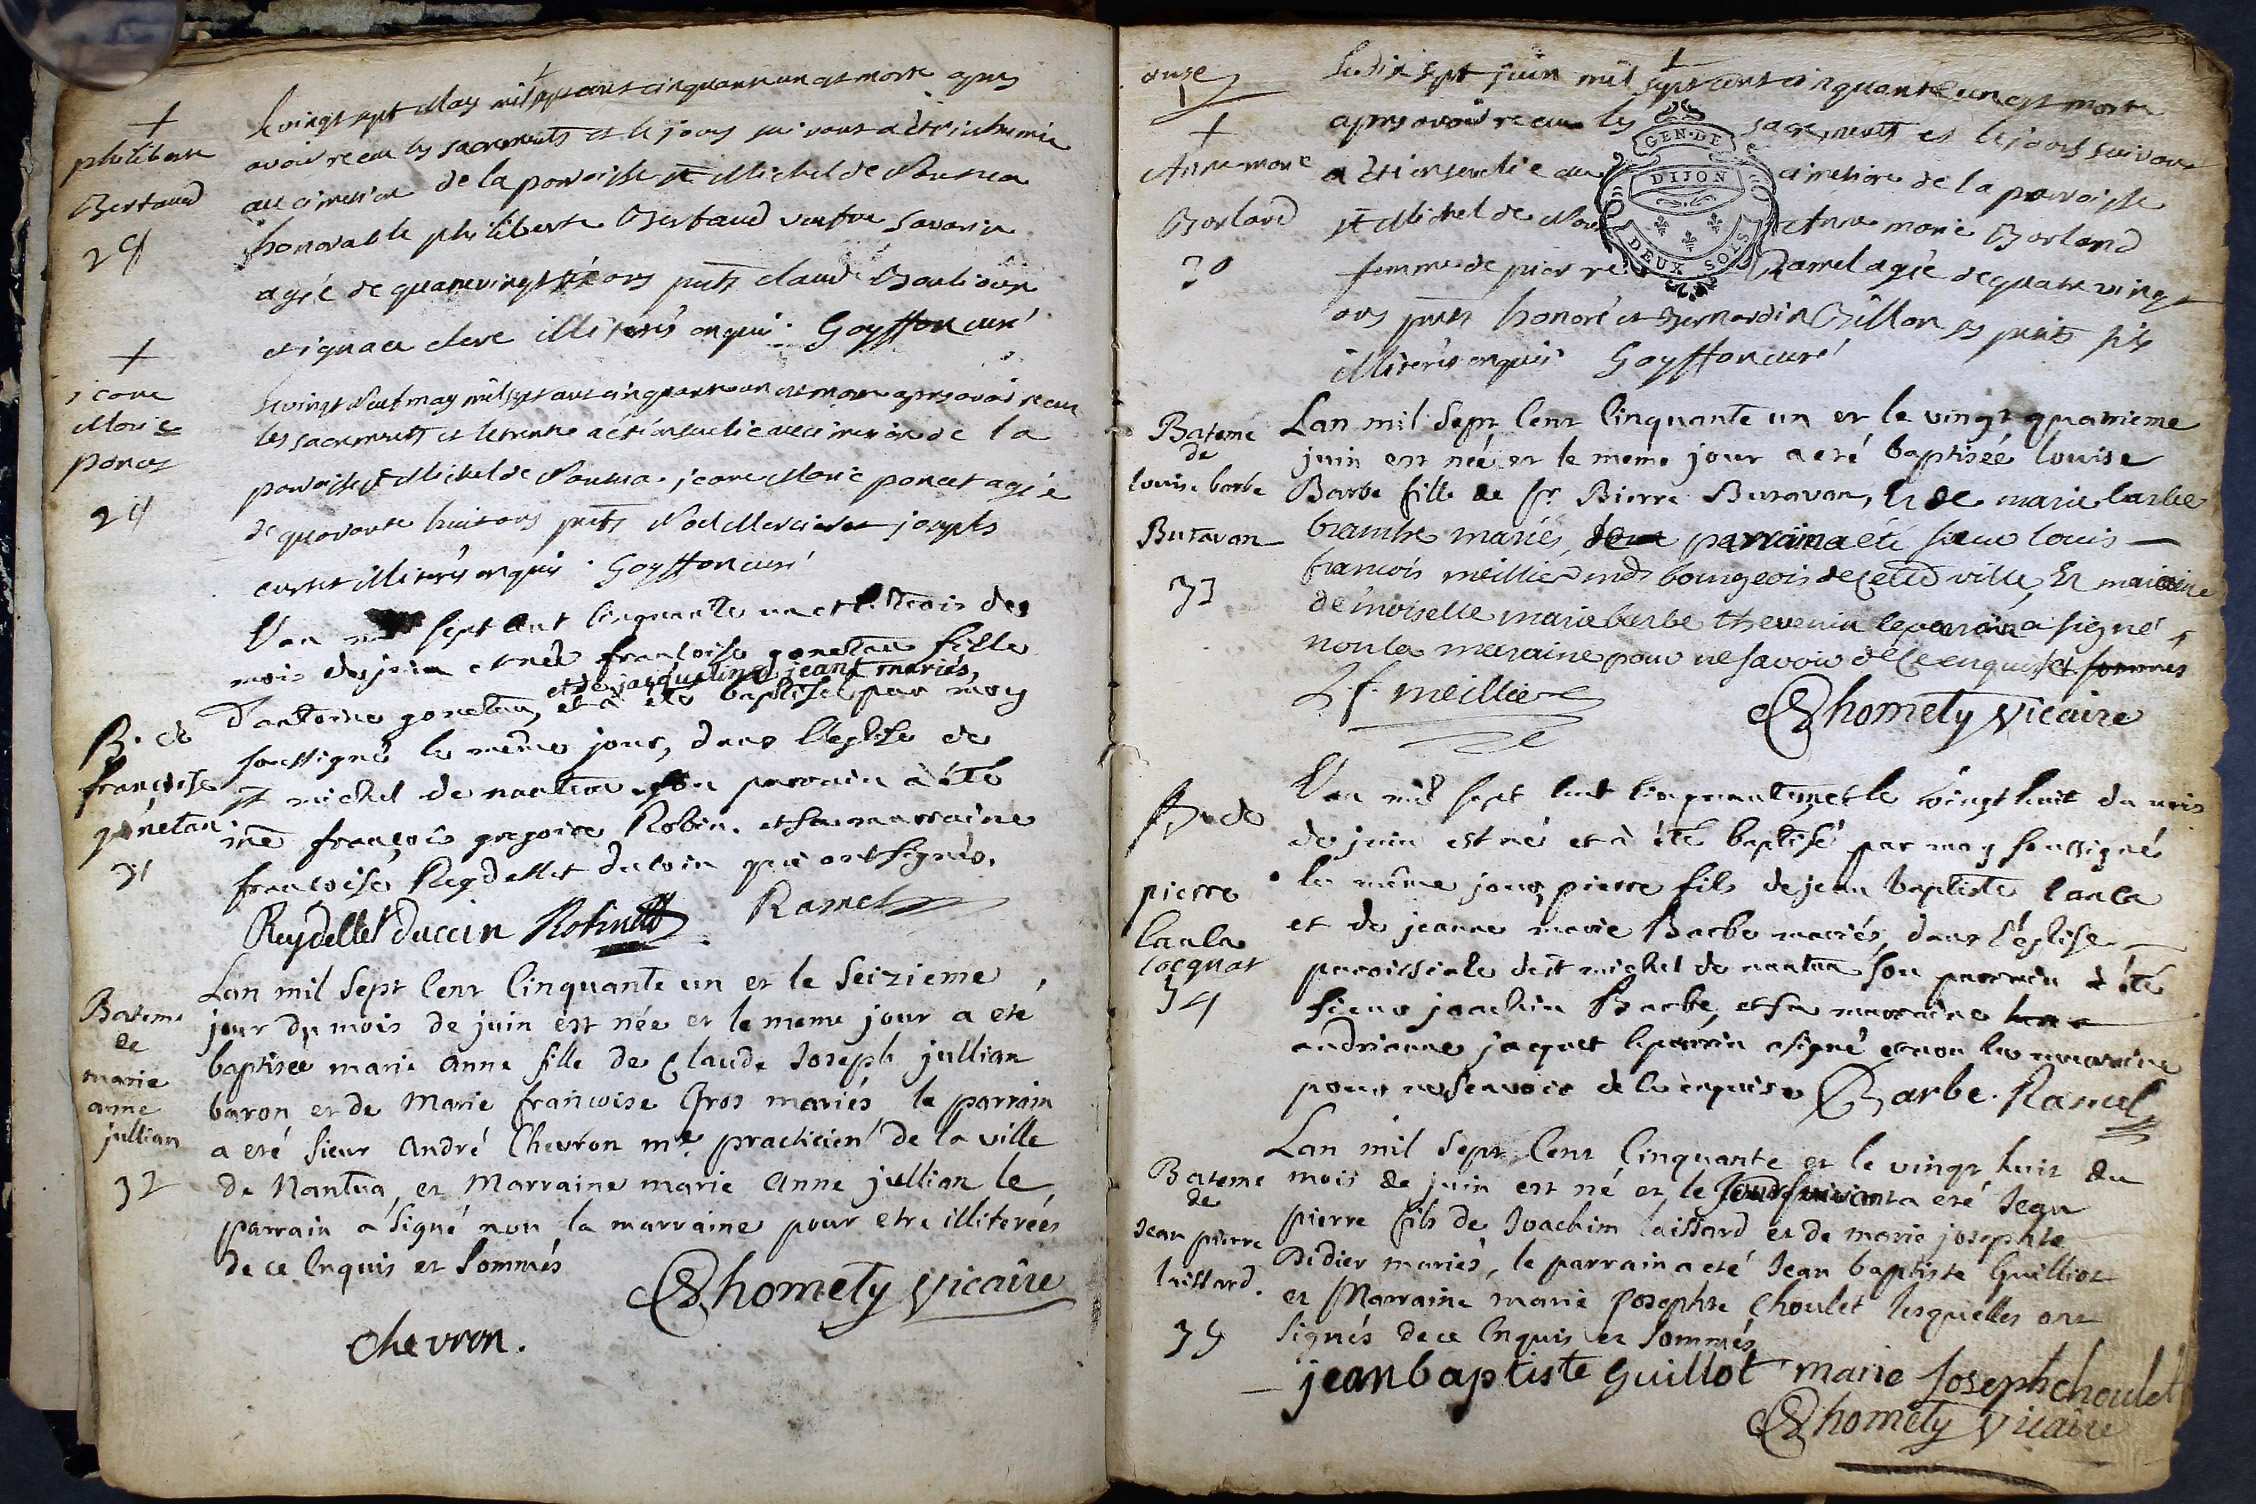 +
philiberte
Bertaud
le vingt sept May mil sept cent cinquante un est morte apres
avoir receu les sacrements et le jour suivant a été inhumée
au cimetiere de la paroisse st Michel de Nantua
honorable philiberte Bertaud veufve Savarin
agée de quatrevingt six ans puts claude Bouliour
et ignace clere illiterés enquis. Goyffon curé
+
jeane
Marie
poncet
29
le vingt neuf may mil sept cent cinquante un est morte apres avoir receu
les sacrements et le trente a été ensuelie au cimetiere de la
paroisse st Michel de Nantua. jeane Marie poncet agée
de quarante huit ans puts Noel Mercier et joseph
curtet illiterés enquis. Goyffon curé
B. de
françoise
gonetan
31
L'an mil sept cent cinquante un et le trois des
mois de juin est née françoise gonetan fille
et de jacqueline jeant mariés,
d'antoine gonetan, et a été baptisée par moy
soussigné le même jour, dans l'eglise de
st michel de nantua son parrain à été
me françois gregoire Robin. et sa marraine
françoise Reydellet ducoin qui ont signés.
Reydellet duccin Robin Ramel
Bateme
de
marie
anne
jullian
32
Lan mil Sept Cent Cinquante un et le Seizieme
jour du mois de juin est née et le meme jour a eté
baptisée marie anne fille de Claude Joseph jullian
baron et de Marie francoise Gros mariés, le parrain
a eté Sieur André Chevron me. practicien de la ville
de Nantua, et Marraine marie Anne jullian le
parrain a Signé non la marraine pour etre illiterées
de ce Enquis et Sommés
Rhomety Vicaire
Chevron.
onze
+
Anne marie
Borland
30
Le dix sept juin mil sept cent cinquante un est morte
apres avoir receu les sacrements et le jour suivant
a été ensevelie au cimetiere de la paroisse
st Michel de Nantua Anne marie Borland
femme de pierre Ramel agée de quatre vingt
ans puts honoré et Bernardin Billon ses petits fils
illiterés enquis Goyffon curé
GEN·DE
DIJON
DEUX SOLS
Bateme
de
louise barbe
Butavan
33
Lan mil Sept Cent Cinquante un et le vingt quatrieme
juin est née et le meme jour a eté baptisée louise
Barbe fille de Sr. Pierre Butavan, et de marie barbe
brambe mariés, parrain a été sieur louis
francois meillier md bourgeois de cette ville, et maraine
demoiselle marie barbe thevenin le parrain a signé
non la maraine pour ne savoir de ce enquis et sommés
L. f. meillier
Rhomety Vicaire
B. de
pierre
lanla
locquat
34
L'an mil sept cent cinquante un et le vingt huit du mois
de juin est né et à été baptisé par moy soussigné
le même jour, pierre fils de jean baptiste lanla
et de jeanne marie Barbe mariés, dans l'église
paroissiale de st michel de nantua son parrain à été
sieur joachim Barbe, et sa marraine
andrianne jacquet le parrain a signé et non la marraine
pour ne scavoir de ce enquise Barbe. Ramel
Bateme
de
Jean pierre
laissard.
35
Lan mil Sept Cent Cinquante et le vingt huit du
mois de juin est né et le jour suivant a eté Jean
pierre fils de Joachim laissard et de marie josephte
Didier mariés, le parrain a eté Jean baptiste Guilliot
et Marraine marie Josephte Choulet lesquelles ont
Signés de ce Enquis et Sommés
jean baptiste Guillot marie Joseph choulet
Rhomety Vicaire